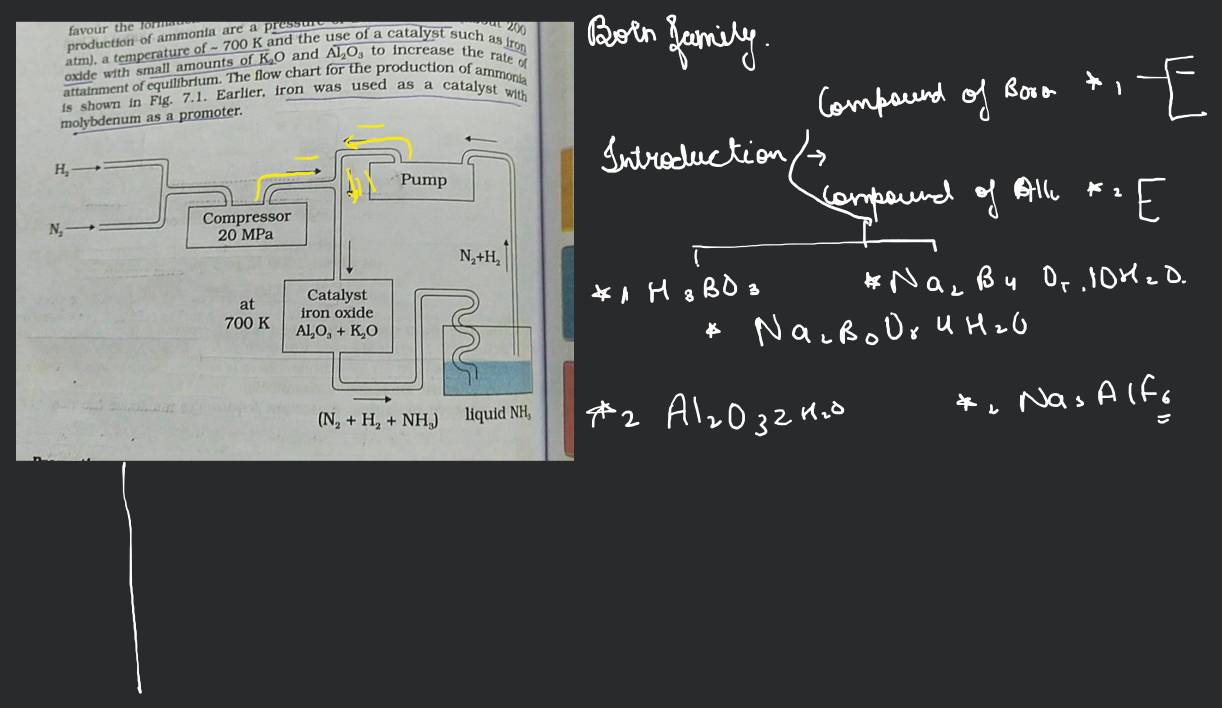 favour the
production of ammonia are a pressure 200
atm), a temperature of ~ 700 K and the use of a catalyst such as iron
oxide with small amounts of K₂O and Al₂O₃ to increase the rate of
attainment of equilibrium. The flow chart for the production of ammonia
is shown in Fig. 7.1. Earlier, iron was used as a catalyst with
molybdenum as a promoter.
H₂
N₂
Compressor
20 MPa
Pump
N₂+H₂
at
700 K
Catalyst
iron oxide
Al₂O₃ + K₂O
(N₂ + H₂ + NH₃)
liquid NH₃
Born family.
Compound of Boron *1
Introduction →
Compound of *2
*1 H3BO3
*Na2B4O7.10H2O.
*2 Al2O32H2O
*2 Na3AlF6